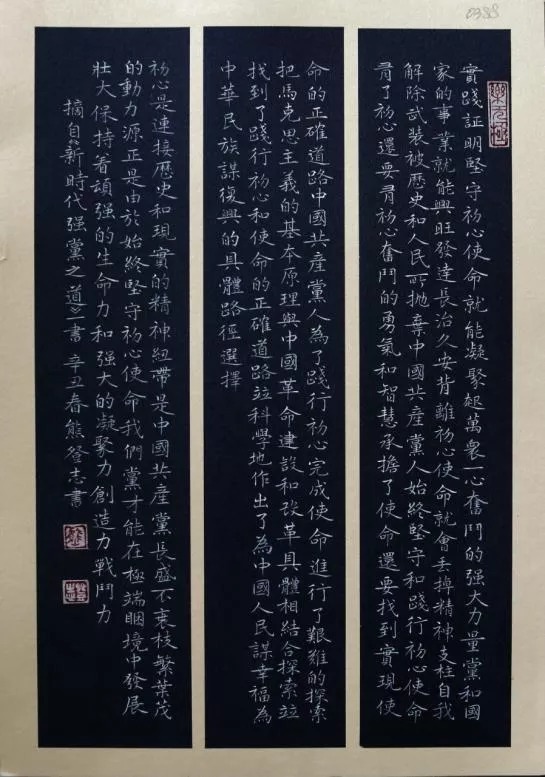 0388
實踐証明堅守初心使命就能凝聚起萬衆一心奮鬥的强大力量黨和國
家的事業就能興旺發達長治久安背離初心使命就會丢掉精神支柱自我
解除武装被歷史和人民所抛棄中國共產黨人始終堅守和踐行初心使命
有了初心還要有初心奮鬥的勇氣和智慧承擔了使命還要找到實現使
命的正確道路中國共產黨人為了踐行初心完成使命進行了艱難的探索
把馬克思主義的基本原理與中國革命建設和改革具體相結合探索並
找到了踐行初心和使命的正確道路並科學地作出了為中國人民謀幸福為
中華民族謀復興的具體路徑選擇
初心是連接歷史和現實的精神紐帶是中國共產黨長盛不衰枝繁葉茂
的動力源正是由於始終堅守初心使命我們黨才能在極端困境中發展
壯大保持着頑强的生命力和强大的凝聚力創造力戰鬥力
摘自《新時代强黨之道》一書 辛丑春熊登志書